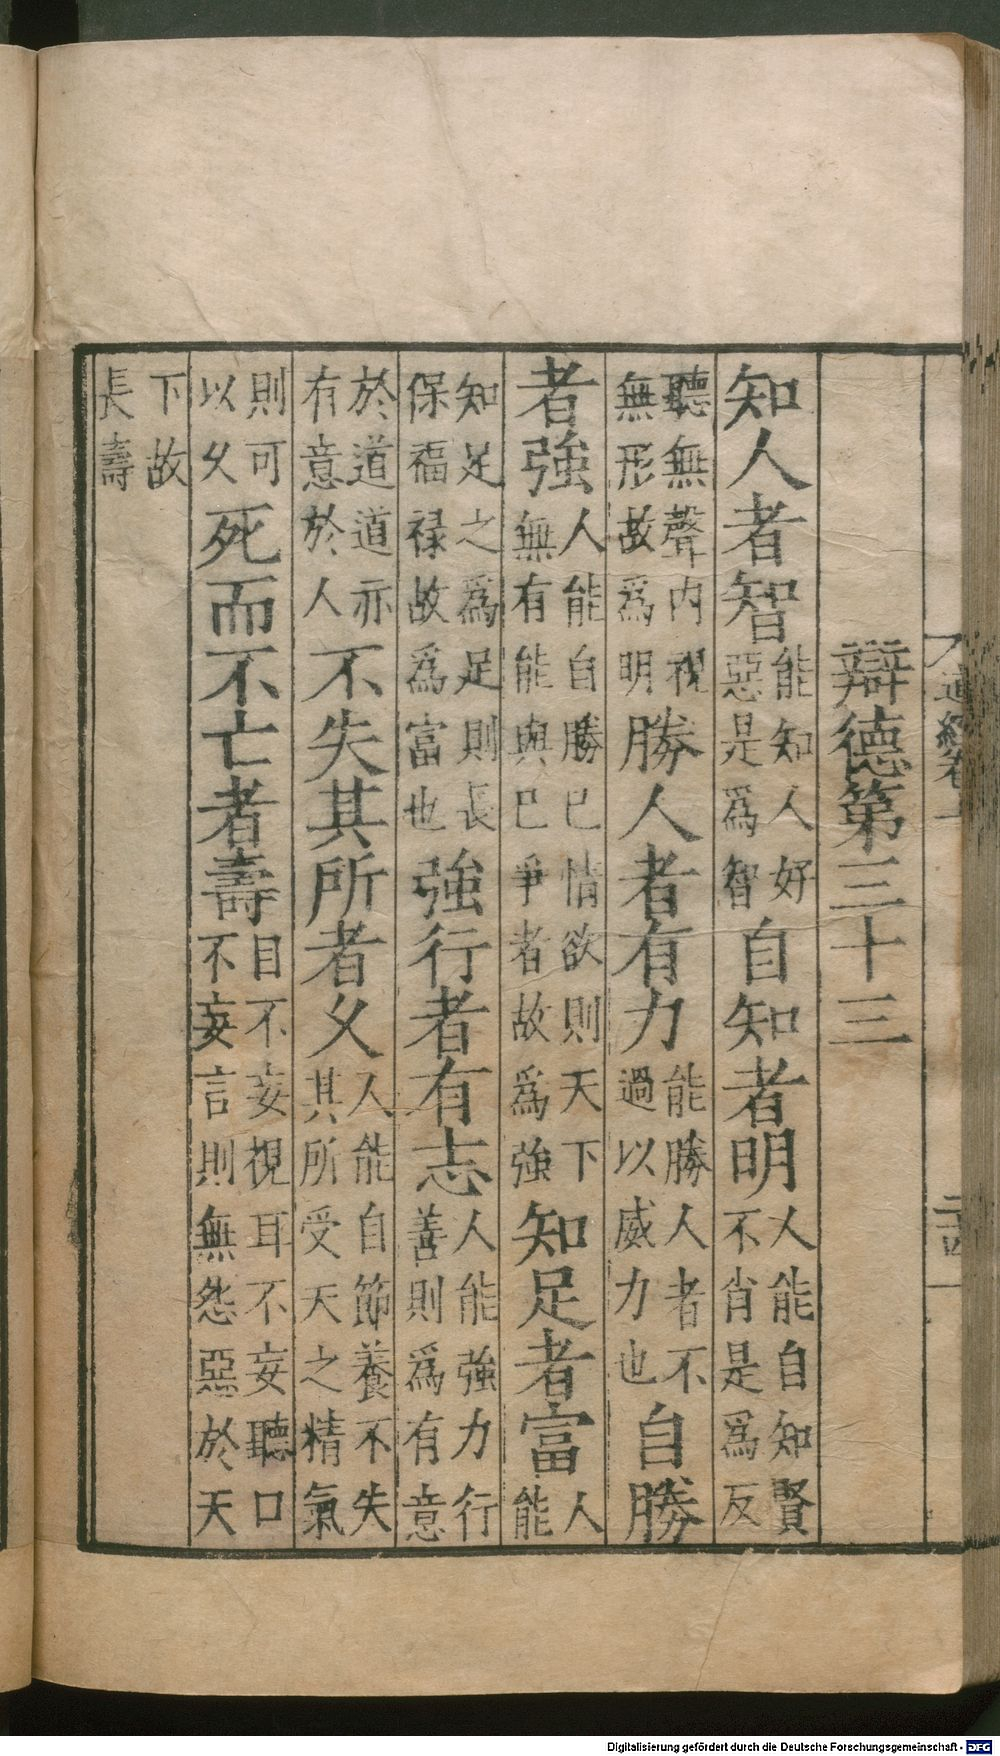 道經卷
辯德第三十三
知人者智能知人好惡是爲智自知者明人能自知賢不肖是爲反
聽無聲内視無形故爲明勝人者有力能勝人者不過以威力也自勝
者強人能自勝已情欲則天下無有能與巳爭者故爲強知足者富人能
知足之爲足則長保福禄故爲富也強行者有志人能強力行善則爲有意
於道道亦有意於人不失其所者乆人能自節養不失其所受天之精氣
則可以乆死而不亡者壽目不妄視耳不妄聽口不妄言則無怨惡於天
下故長壽
Digitalisierung gefördert durch die Deutsche Forschungsgemeinschaft - DFG